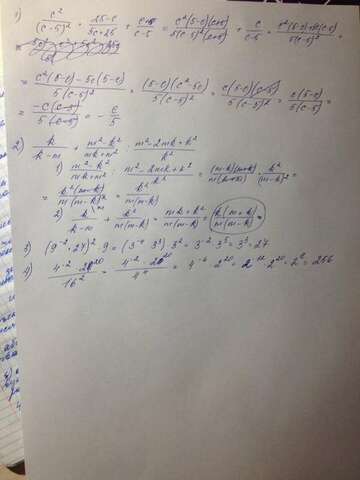 1) c²/(c-5)² · (25-c)/(5c+25) + (c+5)/(c-5) = c²(5-c)(c+5)/5(c-5)²(c+5) + c/(c-5) =
= (c²(5-c)-5c(5-c))/5(c-5)² = (5-c)(c²-5c)/5(c-5)² = c(5-c)(c-5)/5(c-5)² = c(5-c)/5(c-5) =
= -c(c-5)/5(c-5) = -c/5
2) k/(k-m) + (m²-k²)/(mk+m²) : (m²-2mk+k²)/k²
1) (m²-k²)/(mk+m²) : (m²-2mk+k²)/k² = (m-k)(m+k)/m(k+m) · k²/(m-k)² =
= k²(m-k)/m(m-k)² = k²/m(m-k)
2) k/(k-m) + k²/m(m-k) = (mk+k²)/m(m-k) = k(m+k)/m(m-k)
3) (9⁻²·27)²·9 = (3⁻⁴·3³)·3² = 3⁻²·3⁵ = 3³ = 27
4) 4⁻²·2²⁰/16² = 4⁻²·2²⁰/4⁴ = 4⁻⁶·2²⁰ = 2⁻¹²·2²⁰ = 2⁸ = 256